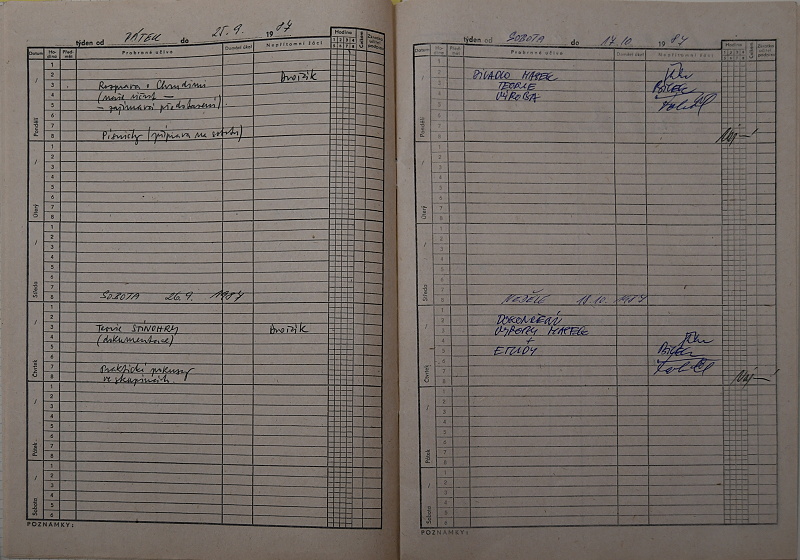 týden od PÁTEK do 25.9. 1987
Datum Hodina Předmět Probrané učivo Domácí úkol Nepřítomní žáci Hodiny Celkem
1 2 3 4
5 6 7 8
Pondělí
Rozprava o Chrudimi
Dvořák
(naše účast —
- zajímavá představení).
Písničky (příprava na sobotu)
Úterý
Středa
SOBOTA 26.9. 1987
Čtvrtek
Teorie STÍNOHRY
Dvořák
(dokumentace)
Praktické pokusy
ve skupinách.
Pátek
Sobota
POZNÁMKY:
týden od SOBOTA do 17.10 1987
Datum Hodina Předmět Probrané učivo Domácí úkol Nepřítomní žáci Hodiny Celkem
1 2 3 4
5 6 7 8
Pondělí
DIVADLO MASEK
TEORIE
VÝROBA
Úterý
Středa
NEDĚLE 18.10. 1987
Čtvrtek
DOKONČENÍ
VÝROBY MASEK
+
ETUDY
Pátek
Sobota
POZNÁMKY: